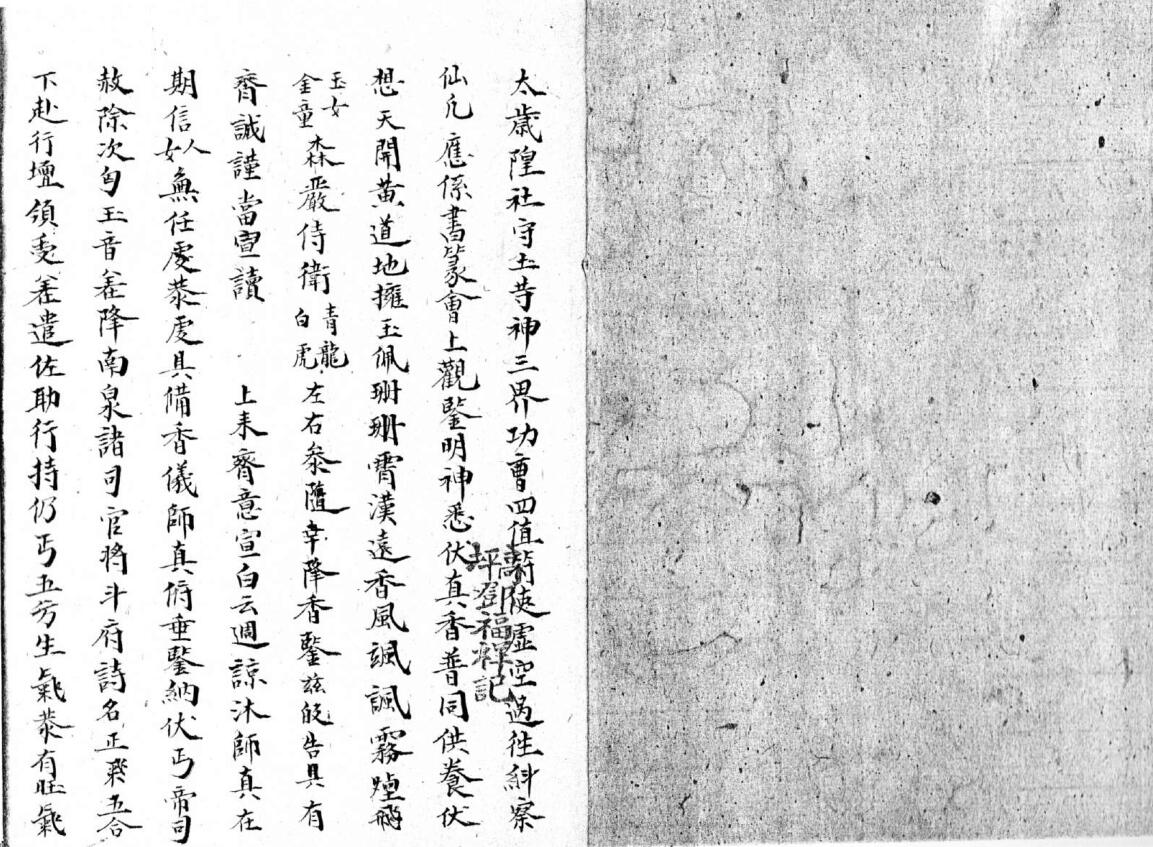 太歲隍社守土䓁神三界功曹四值符使虛空過徃糾察
仙凡應係書篆會上觀鑒明神悉伏真香普同供養伏
坪鄧福輝記
想天開黃道地擁玉佩珊珊霄漢遠香風颯颯霧煙飛
玉女金童森嚴侍衛青龍白虎左右叅隨幸降香鑒玆皈告具有
齊誠謹當宣讀 上来齊意宣白云週諒沐師真在
期信人女無任虔恭虔具備香儀師真俯垂鑒納伏丐帝司
赦除次匄玉音差降南泉諸司官將斗府詩名正炁五合
下赴行壇領受差遣佐助行持仍丐五方生氣恭有旺氣